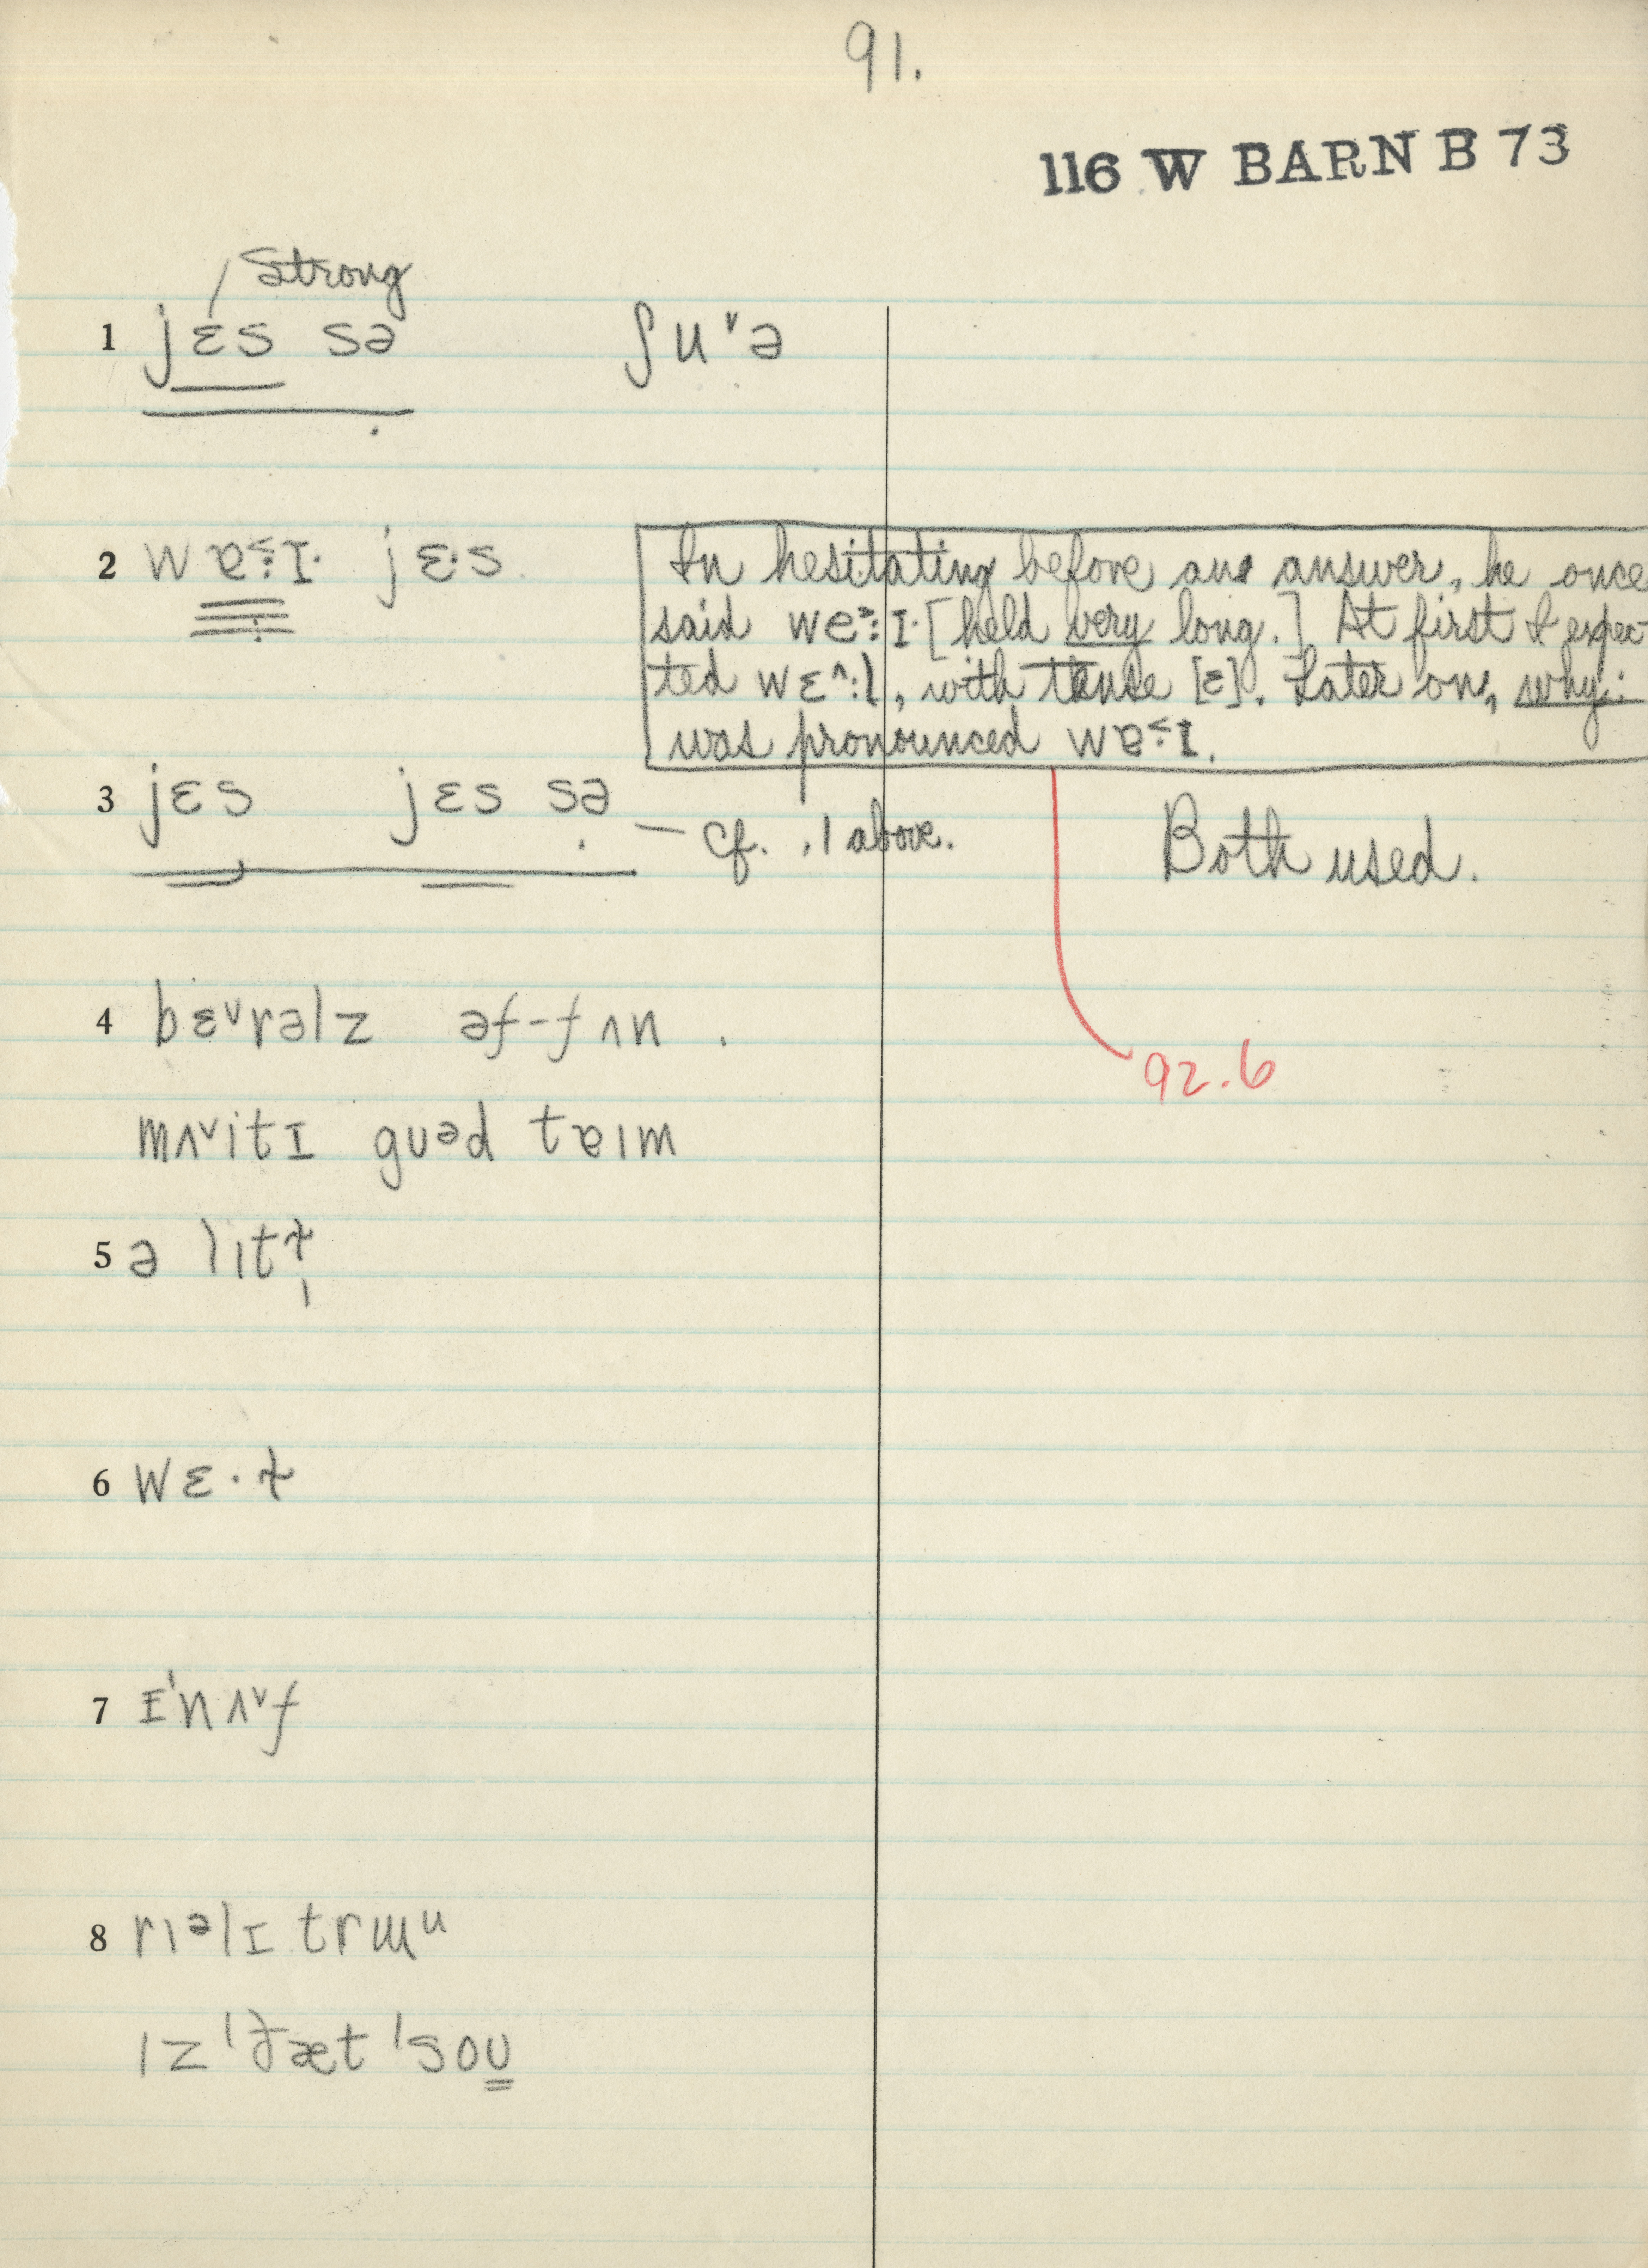 91.
116 W BARN B 73
Strong
1 jɛs sə ʃuᵛə
2 wɐ˂:ɪ· jɛ·s
In hesitating before an answer, he once
said we˃:ɪ· [held very long.] At first I expec-
ted wɛ^:l, with tense [ɛ]. Later on, why:
was pronounced wɐ˂ɪ.
3 jɛs jɛs sə — cf. .1 above. Both used.
4 bɛᵛrəlz əf-fʌn .
92.6
mʌᵛitɪ gʊəd tɐɪm
5 ə lɪtɫ̩
6 wɛ·ɫ
7 ɪ'nʌᵛf
8 rɪəlɪ trɯu
ɪz 'ðæt 'soʊ